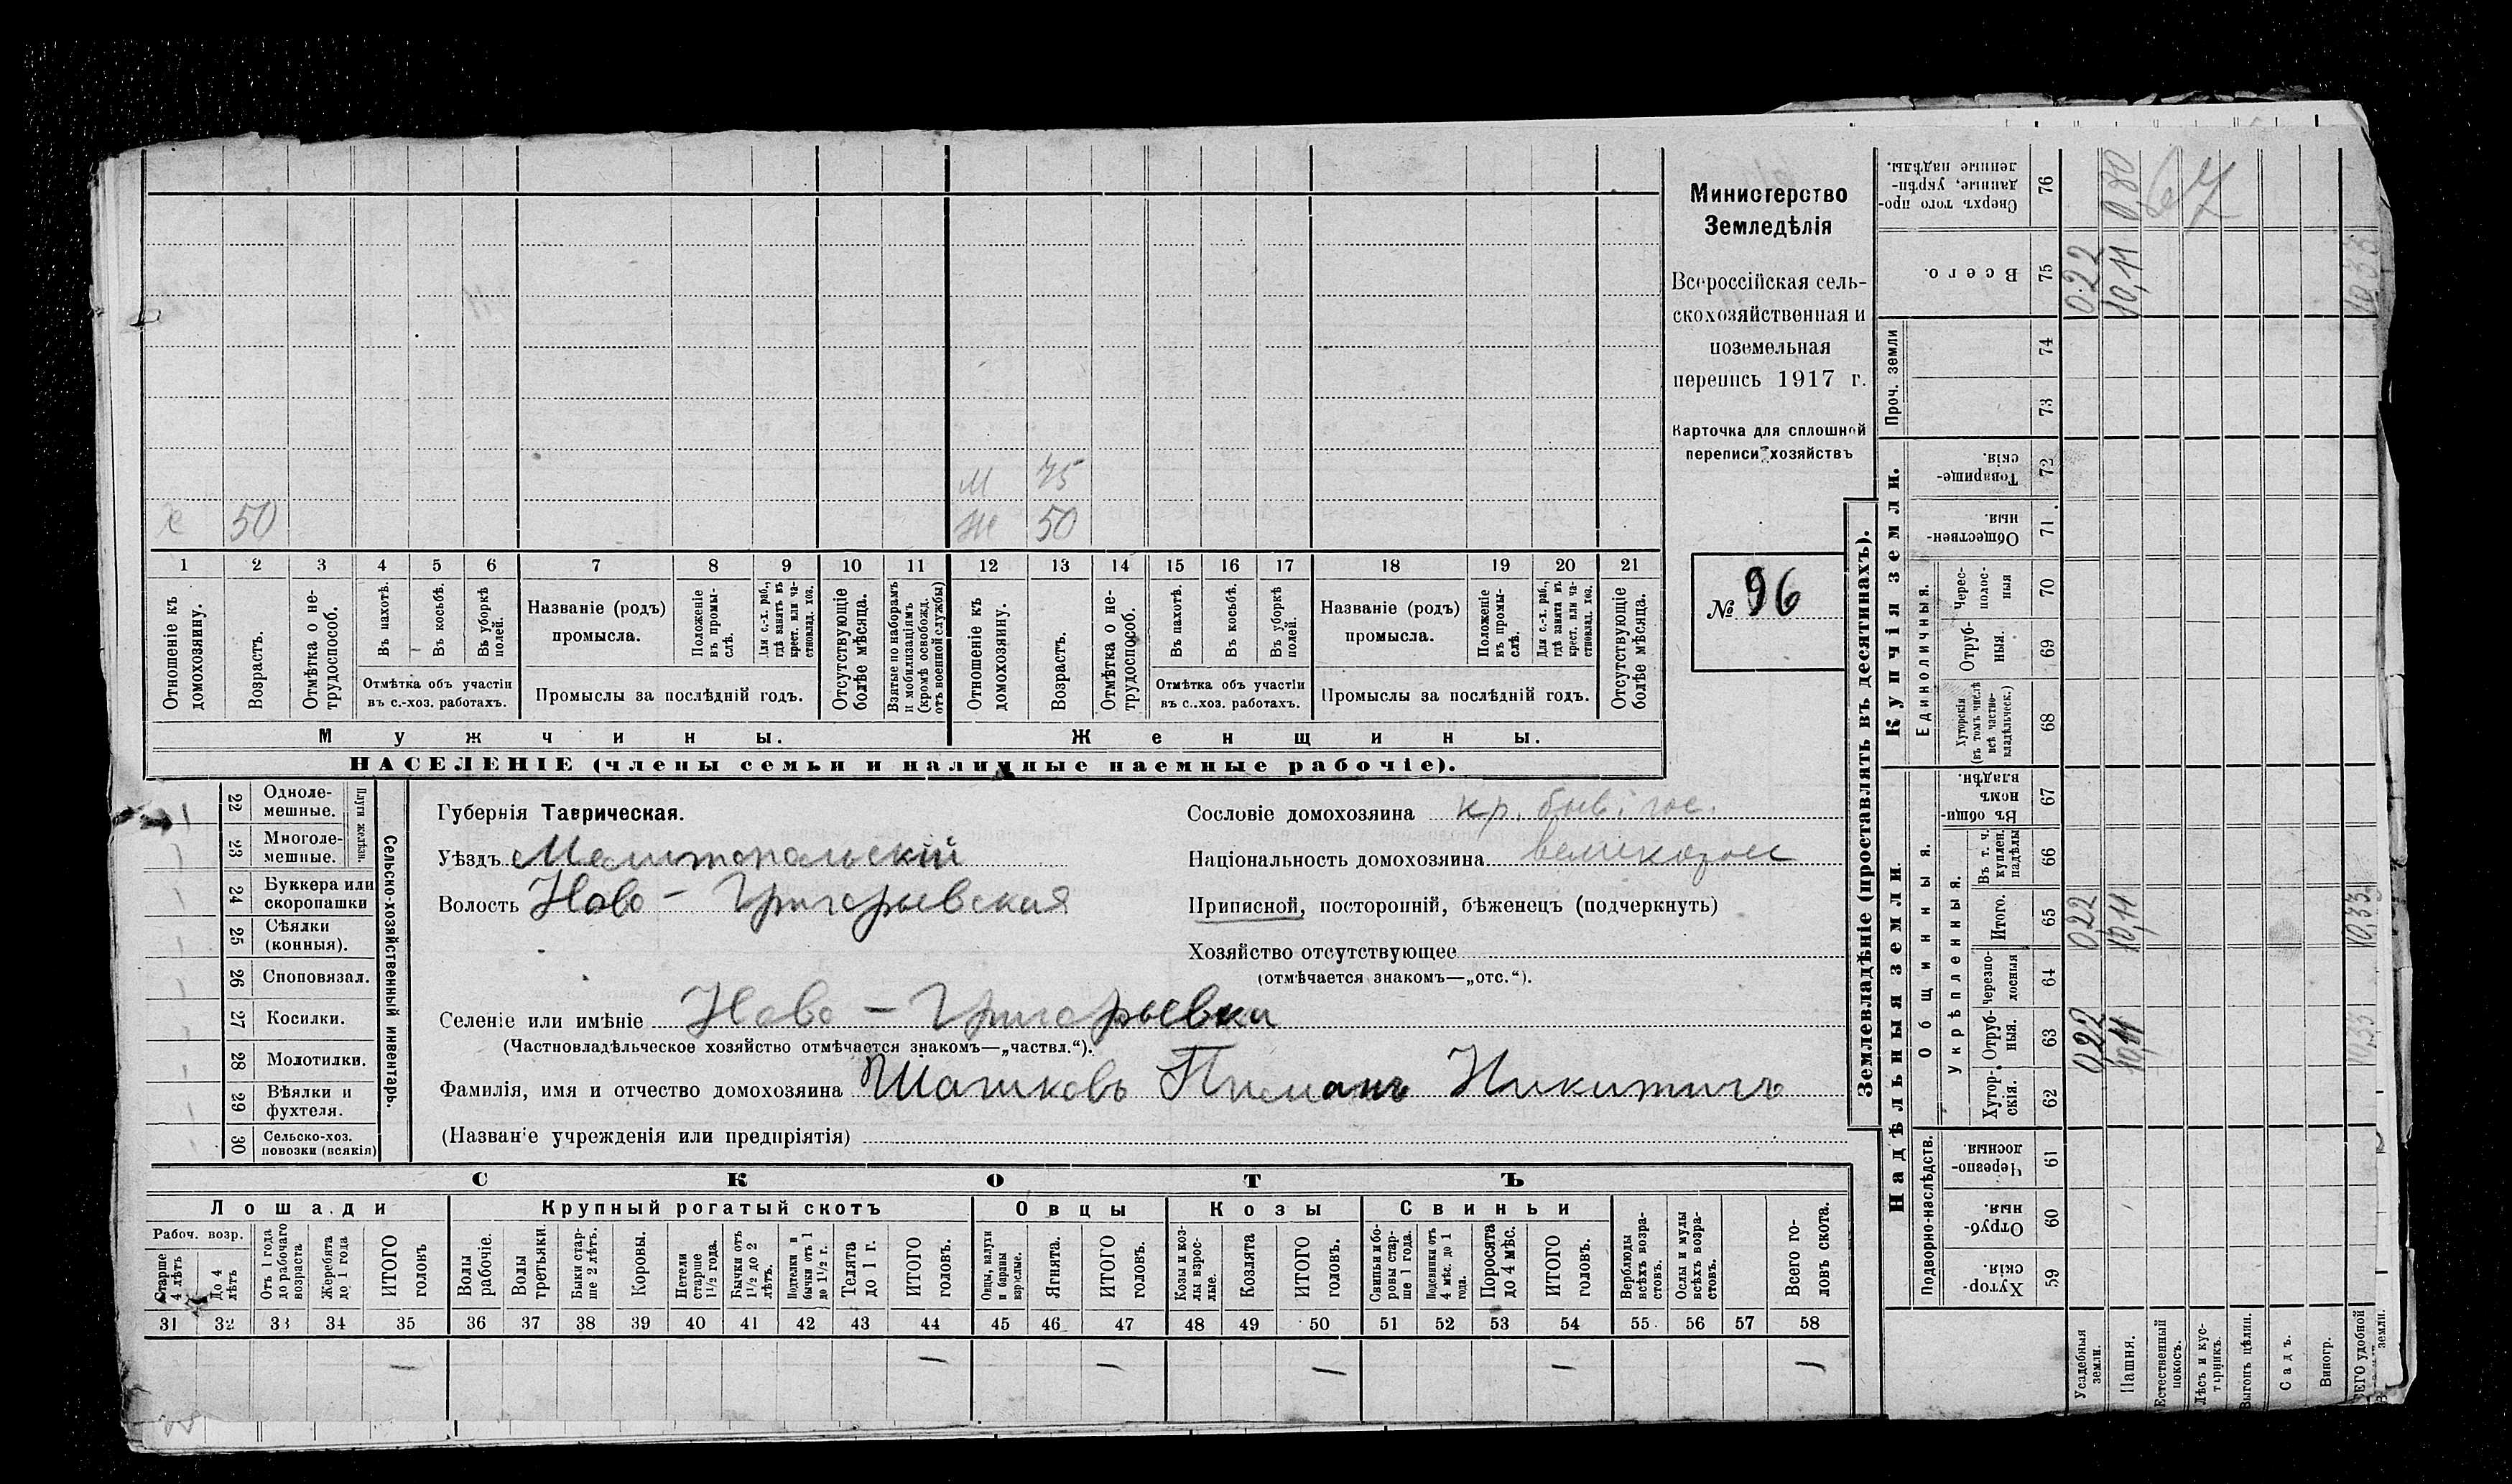 Министерство
Земледѣлія
Всероссійская сель-
скохозяйственная и
поземельная
перепись 1917 г.
Карточка для сплошной
переписи хозяйствъ
№ 96
М 75
х 50
Ж 50
1 2 3 4 5 6 7 8 9 10 11 12 13 14 15 16 17 18 19 20 21
Отношеніе къ домохозяину.
Возрастъ.
Отмѣтка о не-трудоспособ.
Въ пахотѣ.
Въ косьбѣ.
Въ уборкѣ полей.
Отмѣтка объ участіи
въ с.-хоз. работахъ.
Названіе (родъ)
промысла.
Положеніе въ промы-слѣ.
Для с.-х. раб., гдѣ занятъ въ крест. или ча-стновлад. хоз.
Промыслы за послѣдній годъ.
Отсутствующіе болѣе мѣсяца.
Взятые по наборамъ и мобилизаціямъ (кромѣ освобожд. отъ военной службы)
Отношеніе къ домохозяину.
Возрастъ.
Отмѣтка о не-трудоспособ.
Въ пахотѣ.
Въ косьбѣ.
Въ уборкѣ полей.
Отмѣтка объ участіи
въ с.-хоз. работахъ.
Названіе (родъ)
промысла.
Положеніе въ промы-слѣ.
Для с.-х. раб., гдѣ занята въ крест. или ча-стновлад. хоз.
Промыслы за послѣдній годъ.
Отсутствующіе болѣе мѣсяца.
Мужчины. Женщины.
НАСЕЛЕНІЕ (члены семьи и наличные наемные рабочіе).
22 Одноле-мешные.
23 Многоле-мешные.
Плуги желѣзн.
24 Буккера или скоропашки
25 Сѣялки (конныя).
26 Сноповязал.
27 Косилки.
28 Молотилки.
29 Вѣялки и фухтеля.
30 Сельско-хоз. повозки (всякія)
Сельско-хозяйственный инвентарь.
Губернія Таврическая.
Уѣздъ Мелитопольскій
Волость Ново-Григорьевская
Селеніе или имѣніе Ново-Григорьевка
(Частновладѣльческое хозяйство отмѣчается знакомъ—„частвл.“).
Фамилія, имя и отчество домохозяина Шашковъ Пиманъ Никитичъ
(Названіе учрежденія или предпріятія)
Сословіе домохозяина кр. быв. гос.
Національность домохозяина великоросс
Приписной, посторонній, бѣженец (подчеркнуть)
Хозяйство отсутствующее
(отмѣчается знакомъ—„отс.“).
СКОТЪ
Лошади Крупный рогатый скотъ Овцы Козы Свиньи
Рабоч. возр.
Старше 4 лѣтъ
До 4 лѣтъ
Отъ 1 года до рабочаго возраста
Жеребята до 1 года
ИТОГО головъ
Волы рабочіе.
Волы третьяки.
Быки стар-ше 2 лѣтъ.
Коровы.
Нетели старше 1½ года.
Бычки отъ 1½ до 2 лѣтъ.
Подтелки и бычки отъ 1 до 1½ г.
Телята до 1 г.
ИТОГО головъ.
Овцы, валухи и бараны взрослые.
Ягнята.
ИТОГО головъ.
Козы и коз-лы взрос-лые.
Козлята
ИТОГО головъ.
Свиньи и бо-ровы стар-ше 1 года.
Подсвинки отъ 4 мѣс. до 1 года.
Поросята до 4 мѣс.
ИТОГО головъ.
Верблюды всѣхъ возра-стовъ.
Ослы и мулы всѣхъ возра-стовъ.
Всего го-ловъ скота.
31 32 33 34 35 36 37 38 39 40 41 42 43 44 45 46 47 48 49 50 51 52 53 54 55 56 57 58
— — — — — —
Землевладѣніе (проставлять въ десятинахъ).
Надѣльныя земли. Купчія земли. Проч. земли
Подворно-наслѣдств. Общинныя. Единоличныя.
Укрѣпленныя.
59 Хутор-скія.
60 Отруб-ныя.
61 Черезпо-лосныя
62 Хутор-скія.
63 Отруб-ныя.
64 Черезпо-лосныя
65 Итого.
66 Въ т. ч. куплен. надѣлы
67 Въ общи-номъ владѣн.
68 Хуторскія (въ томъ числѣ всѣ частно-владѣльческ.)
69 Отруб-ныя.
70 Черес-полос-ныя
71 Обществен-ныя.
72 Товарище-скія.
73
74
75 Всего.
76 Сверхъ того про-данные, укрѣп-ленные надѣлы.
Усадебныя земли. 0,22 0,22 0,22
Пашня. 10,11 10,11 10,11 0,80
Естественный покосъ.
Лѣсъ и кус-тарникъ.
Выгонъ цѣлин.
Садъ.
Виногр.
10,33 10,33 10,33
67